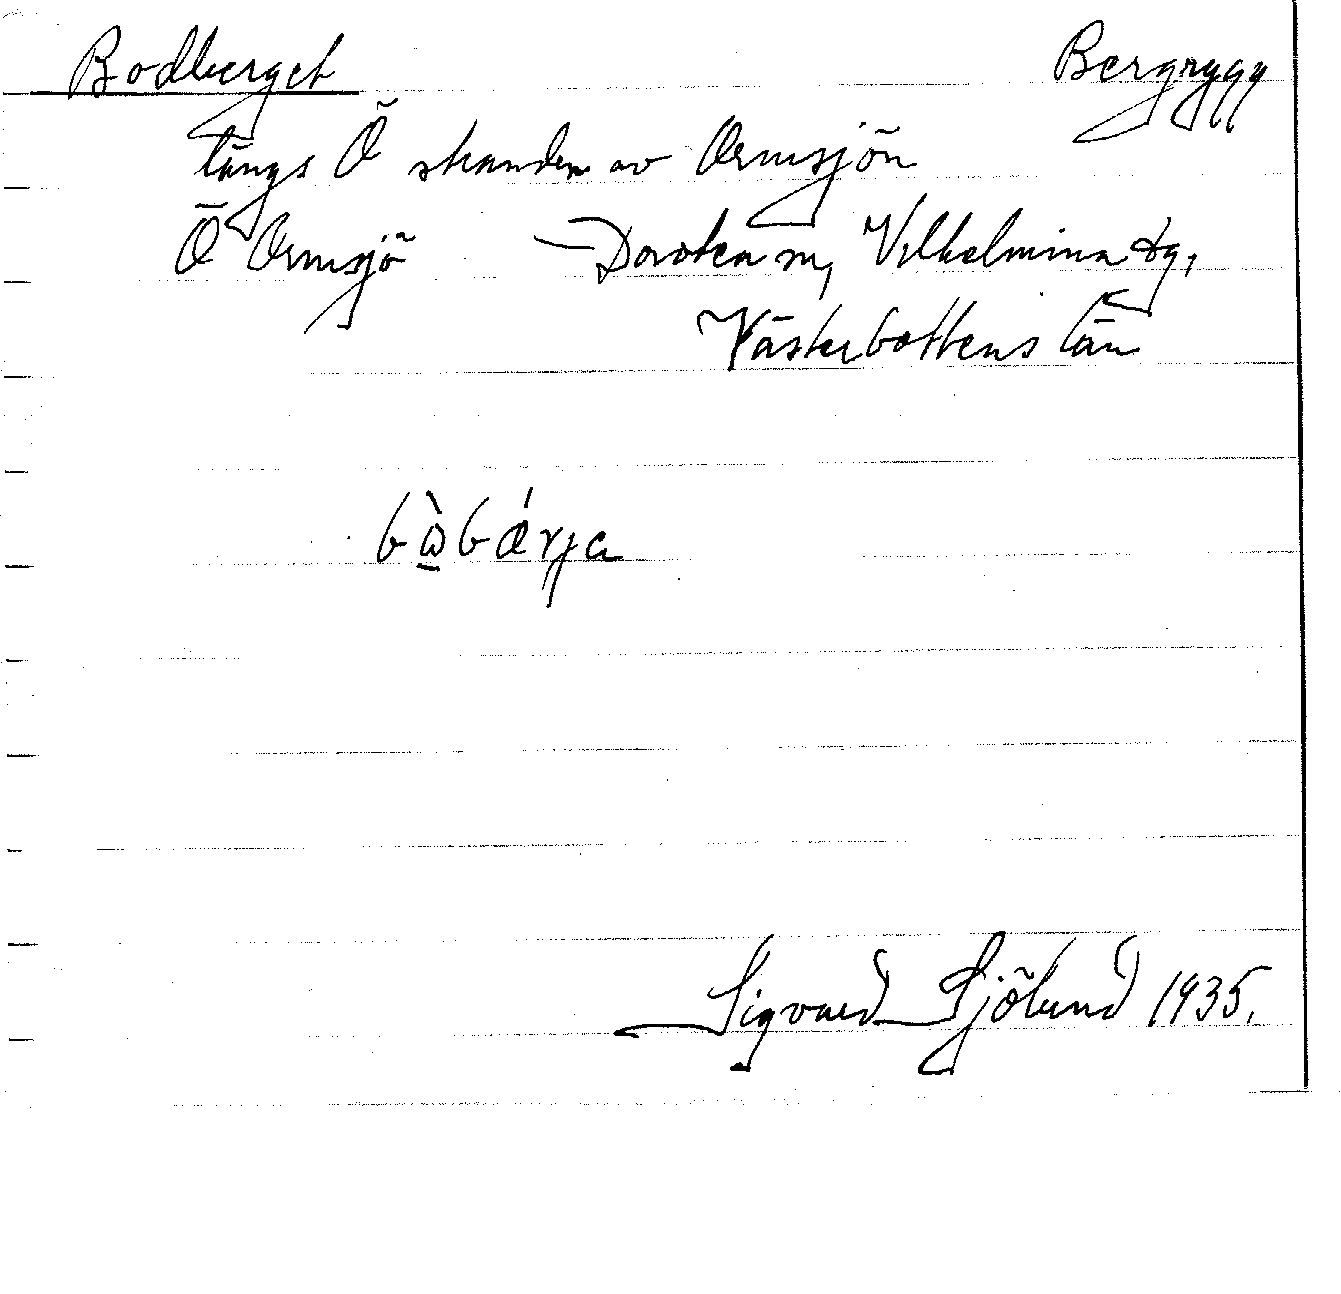 Bodberget Bergrygg
längs Ö stranden av Ormsjön
Ö Ormsjö Dorotea sn, Vilhelmina tg,
Västerbottens län
bὼ̲bǽrja
Sigvard Sjölund 1935.